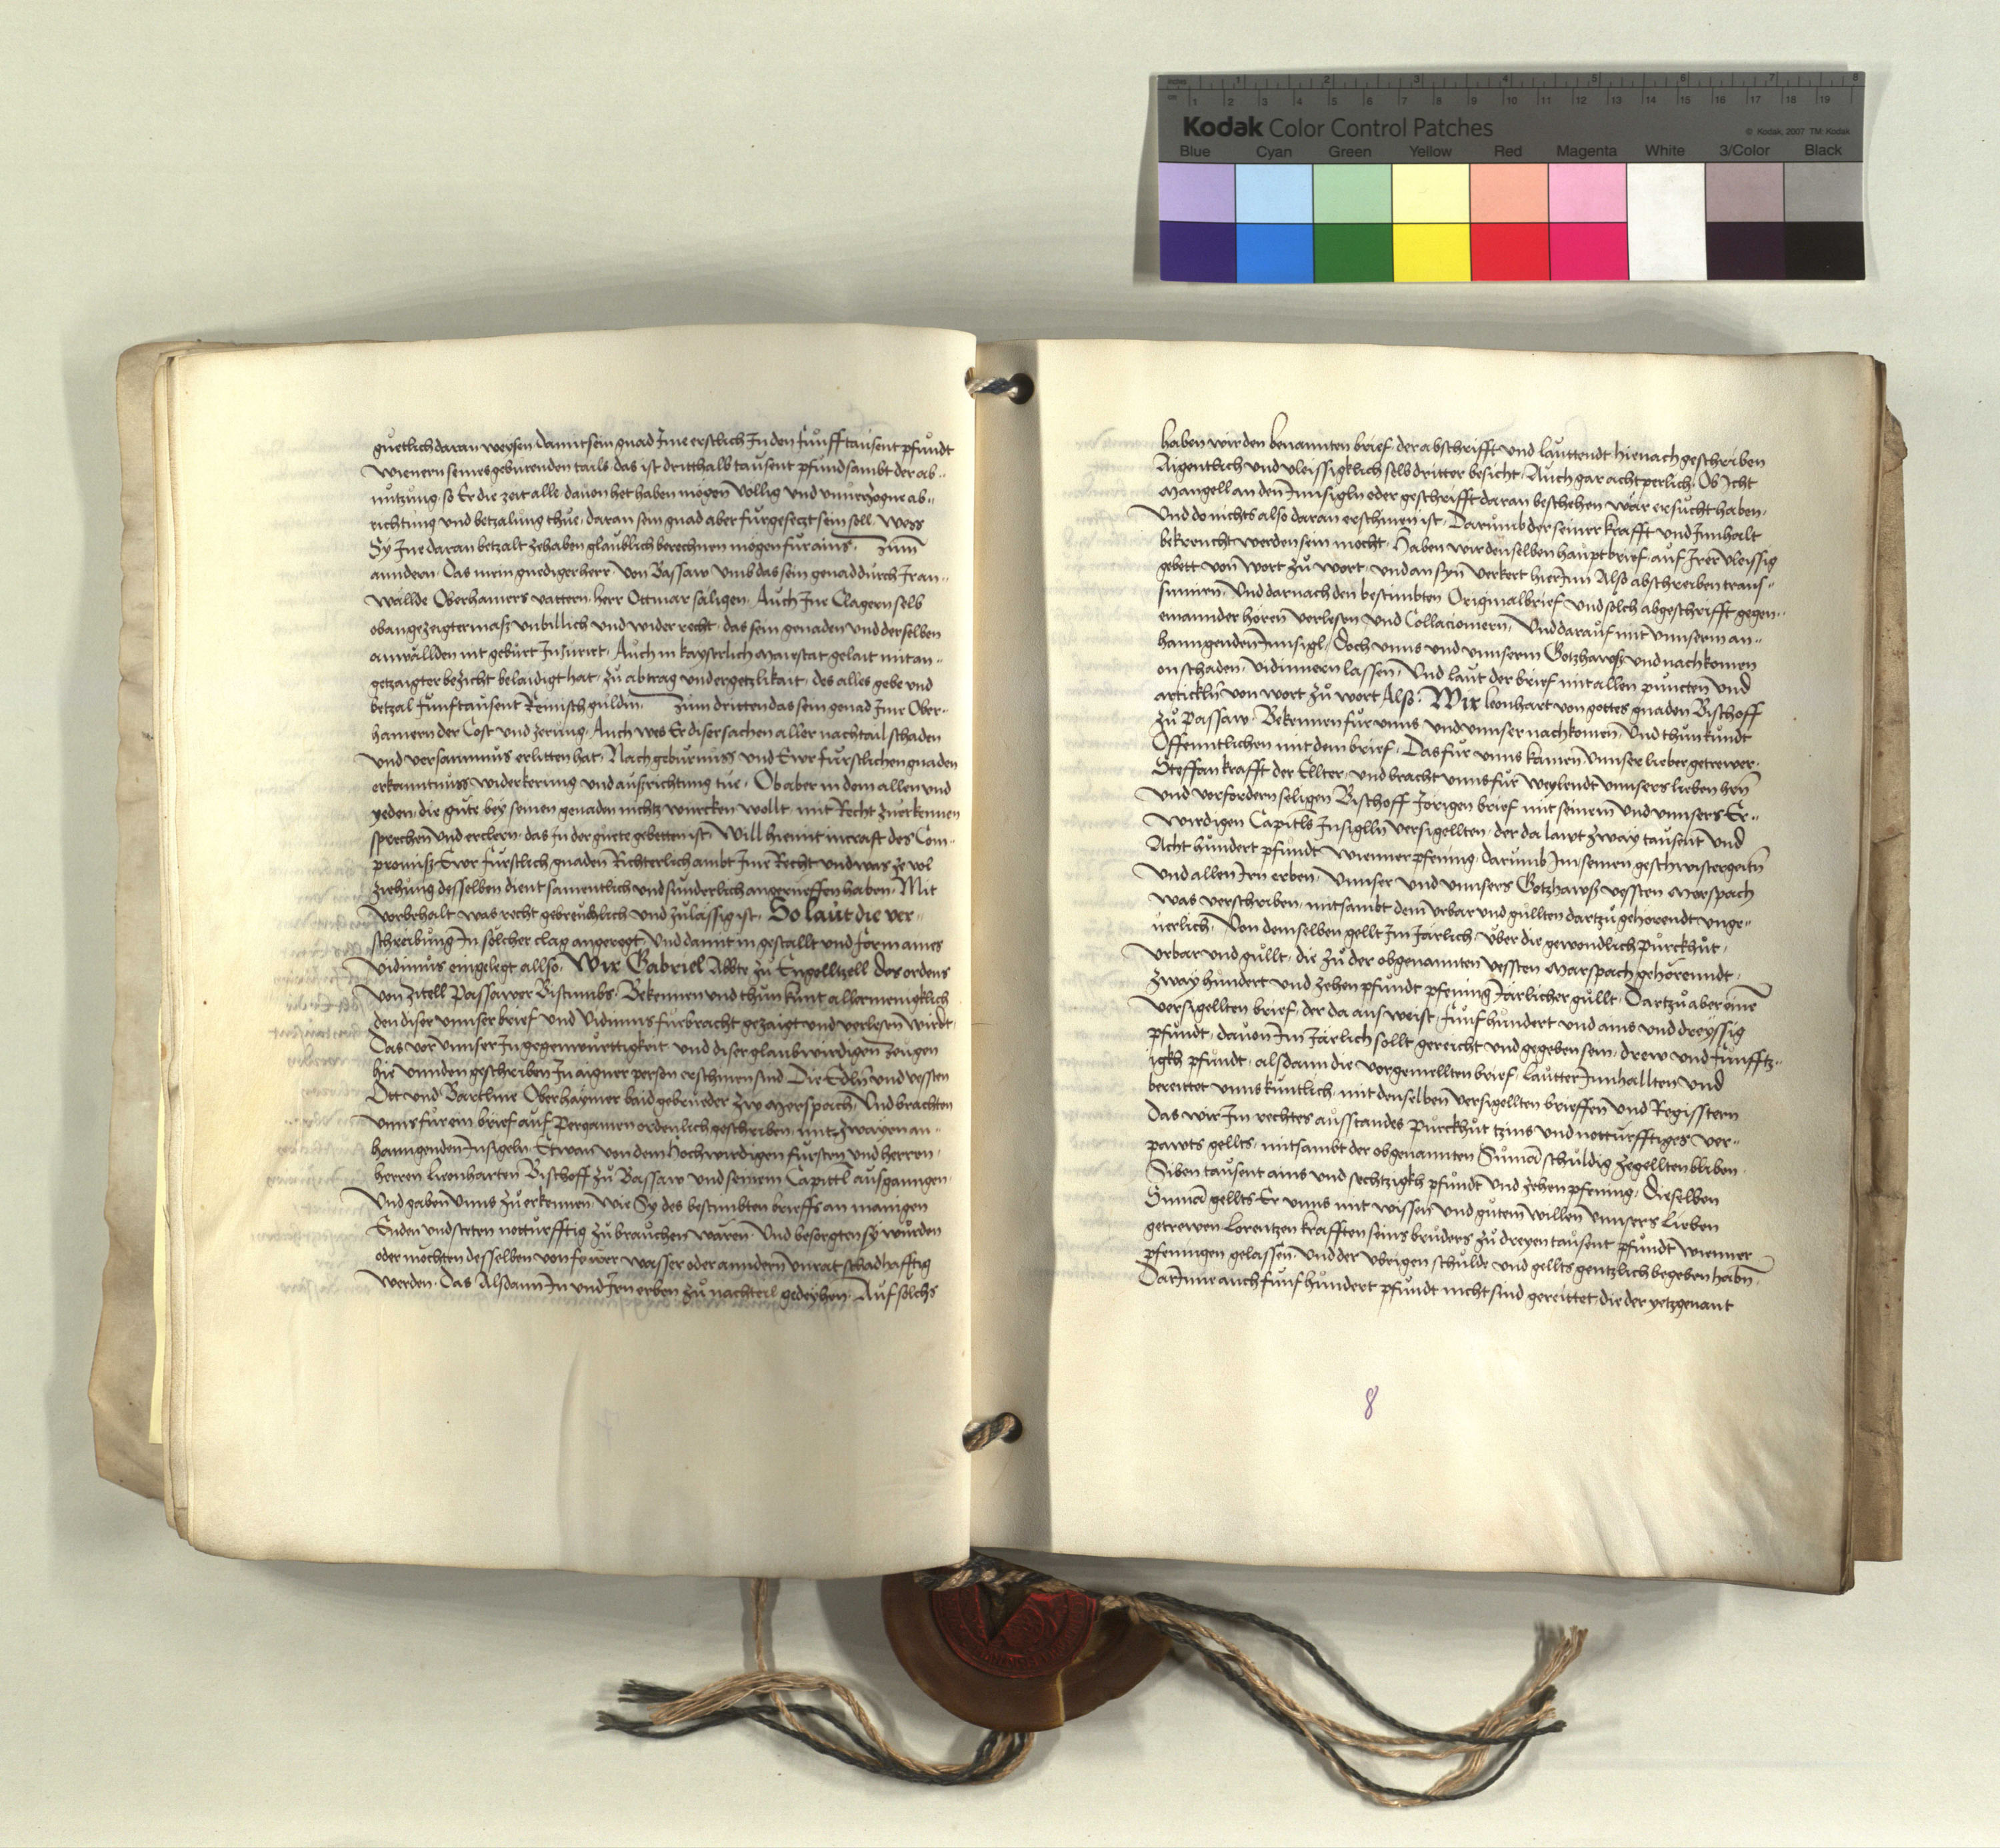 Kodak Color Control Patches
© Kodak, 2007 TM: Kodak
Blue Cyan Green Yellow Red Magenta White 3/Color Black
guetlich daran weysen damit sein gnad Jme erstlich Jn den funfftausent pfundt
wienern seines geburenden tails das ist dritthalb tausent pfund sambt der ab-
nutzung, so Er die zeit alle dauon het haben mögen Völlig vnd vnuerzogne ab-
richtung vnd betzalung thue, daran sein gnad aber furgesetzt sein soll, wess
Sy Jne daran betzalt zehaben glaublich berechnen mögen für ains. Zum
anndern Das mein gnediger herr von Bassaw vmb das sein genad durch Jr an-
wällde Oberhaimers vattern, herr Ottmar säligen, Auch Jne Clagern selb
obangezeigtermaß vnbillich vnd wider recht, das sein genaden vnd derselben
anwällden nit gebürt Jniuriert, Auch in kayserlich Maiestat gelait mit an-
getzaigter bezicht belaidigt hat, zu abtrag vnd ergetzlikait, des alles gebe vnd
betzal funftausent Reinisch guldin. Zum dritten das sein genad Jme Ober-
hamern der Cost vnd zerung, Auch wes Er diser sachen aller nachtail schaden
vnd versaumnus erlitten hat, Nach geburnuss vnd Ewr furstlichen gnaden
erkanntnuss widerkerung vnd außrichtung tue, Ob aber in dem allen vnd
yeden, die güte bey seinen genaden nichtz wurcken wollt, mit Recht zuerkennen
sprechen vnd ercleren, das Jn der guete gebetten ist, Will hiemit in craft des Com-
promiß Ewr furstlich gnaden Richterlich ambt Jme Recht vnd was ze vol
ziehung desselben dient samentlich vnd sunderlich angerueffen haben, Mit
vorbehalt was recht gebreuchlich vnd zulässig ist. So laut die ver-
schreibung Jn solcher clag angeregt, Vnd damit in gestallt vnd form aines
Vidimus eingelegt allso. Wir Gabriel Abbte zu Engelltzell des ordens
von Zitell Passawer Bistumbs, Bekennen vnd thun kunt allermenigklich
den diser vnnser brief vnd Vidimus furbracht gezaigt vnd verlesen wirdt,
Das vor vnnser Jn gegenwurttigkeit vnd diser glaubwirdigen zeugen
hie vnnden geschriben Jn aigner person erschinen sind Die Edln vnd vessten
Ott vnd Bartlme Oberhaymer baid gebrueder zw Merspach, Vnd brachten
vnns fur ein brief auf Pergamen ordenlich geschriben, mit zwayen an-
hanngenden Jnsigeln, Etwan von dem hochwirdigen fursten vnd herren,
herren Leonharten Bischoff zu Bassaw vnd seinem Capittl ausganngen,
Vnd gaben vnns zu erkennen, wie Sy des bestimbten brieffs an manigen
Enden vnd steten notturfftig zu brauchen wären, Vnd besorgten sy wurden
oder möchten desselben von fewer wasser oder anndern vnrat schadhafftig
werden, Das Alsdann Jn vnd Jrn erben zu nachteil gedeyhen, Auf solchs
haben wir den benannten brief, der abschrifft vnd lauttendt hienach geschriben
Aigentlich vnd vleissigklich selbdritter besicht, Auch gar achtperlich, Ob Jcht
Mangell an den Jnnsigln oder geschrifft daran beschehen wär ersucht haben,
Vnd do nichts also daran erschinen ist, Darumb der seiner krafft vnd Jnnhalt
bekrenckt werden sein mocht, Haben wir denselben hauptbrief, auf Jrer vleissig
gebett von wort zu wort, vnd an syn verkert hierJnn Also abschreiben trans-
sumirn, Vnd darnach den bestimbten Originalbrief vnd solch abgeschrifft gegen-
einannder hören verlesen vnd Collacioniern, Vnd darauf mit vnnserm an-
hanngenden Jnnsigl, Doch vnns vnd vnnserm Gotzhawß vnd nachkomen
on schaden, vidimiern lassen, Vnd laut der brief mit allen puncten vnd
artickln von wort zu wort Also. Wir Leonhart von gottes gnaden Bischoff
zu Passaw, Bekennen für vnns vnd vnnser nachkomen, Vnd thun kundt
Offenntlichen mit dem brief, Das für vnns kamen, Vnnser lieber getrewer
Steffan krafft der Ellter, vnd bracht vnns fur weylendt vnnsers lieben hern
vnd vorfordern seligen Bischoff Jörigen brief mit seinem vnd vnnsers Er-
wirdigen Capitls Jnsiglln versigellten, der da lawt zway tausent vnd
Acht hundert pfundt wienner pfening, darumb Jm seinen geschwistergeitn
vnd allen Jrn erben, vnnser vnd vnnsers Gotzhawß vessten Merspach
was verschriben, mitsambt dem vrbar vnd gullten dartzu gehorendt vnge-
uerlich, Von demselben gellt Jm Järlich, über die gewondlich purckhut,
vrbar vnd gullt, die zu der obgenannten vessten Marspach gehörenndt,
zway hundert vnd zehen pfundt pfening Järlicher gullt, Dartzu aber eine
versigellten brief, der da ausweist, funf hundert vnd ains vnd dreyssig
pfundt, dauon Jm Järlich sollt gereicht vnd gegeben sein, drew vnd funfftz-
igkh pfundt, alsdann die vorgemellten brief, lautter Jnnhallten vnd
bereittet vnns kuntlich, mit denselben versigellten brieffen vnd Regisstern
Das wir Jm rechtes ausstandes purckhut tzins vnd notturfftiges ver-
pawts gellts, mitsambt der obgenannten Suma schuldig ze gellten bliben,
Siben tausent ains vnd sechtzigkh pfundt vnd zehen pfening, Dieselben
Suma gellts Er vnns mit wissen vnd gutem willen vnnsers Lieben
getrewen Lorentzen krafften seins bruders zu dreyen tausent pfundt wienner
pfeningen gelassen, vnd der vbrigen schuld vnd gellts gentzlich begeben habn,
DarJnne auch funf hundert pfundt nicht sind gereittet, die der yetzgenant
8